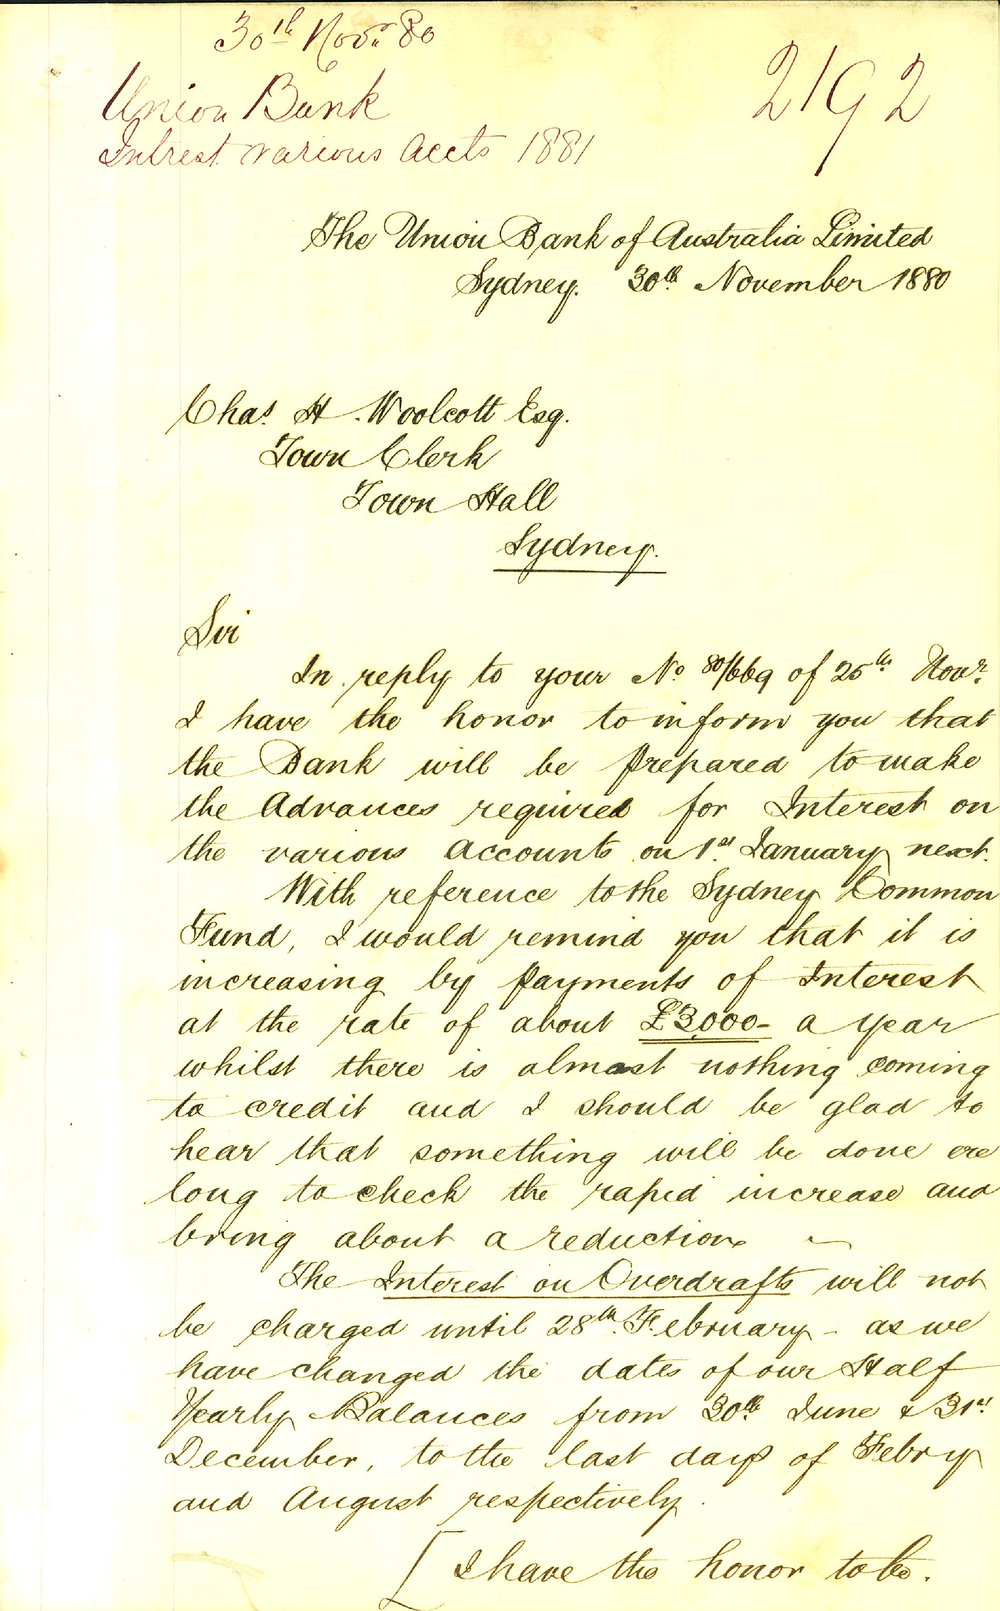 30th Novr 80
2192
Union Bank
Intrest various Accts 1881
The Union Bank of Australia Limited
Sydney. 30th November 1880
Chas. H. Woolcott Esq.
Town Clerk
Town Hall
Sydney.
Sir
In reply to your No. 80/669 of 25th Novr.
I have the honor to inform you that
the Bank will be prepared to make
the Advances required for Interest on
the various accounts on 1st January next.
With reference to the Sydney Common
Fund, I would remind you that it is
increasing by payments of Interest
at the rate of about £3,000- a year
whilst there is almost nothing coming
to credit and I should be glad to
hear that something will be done ere
long to check the rapid increase and
bring about a reduction
The Interest on Overdrafts will not
be charged until 28th February - as we
have changed the dates of our Half
Yearly Balances from 30th June & 31st
December, to the last days of Febry
and August respectively.
[I have the honor to be.